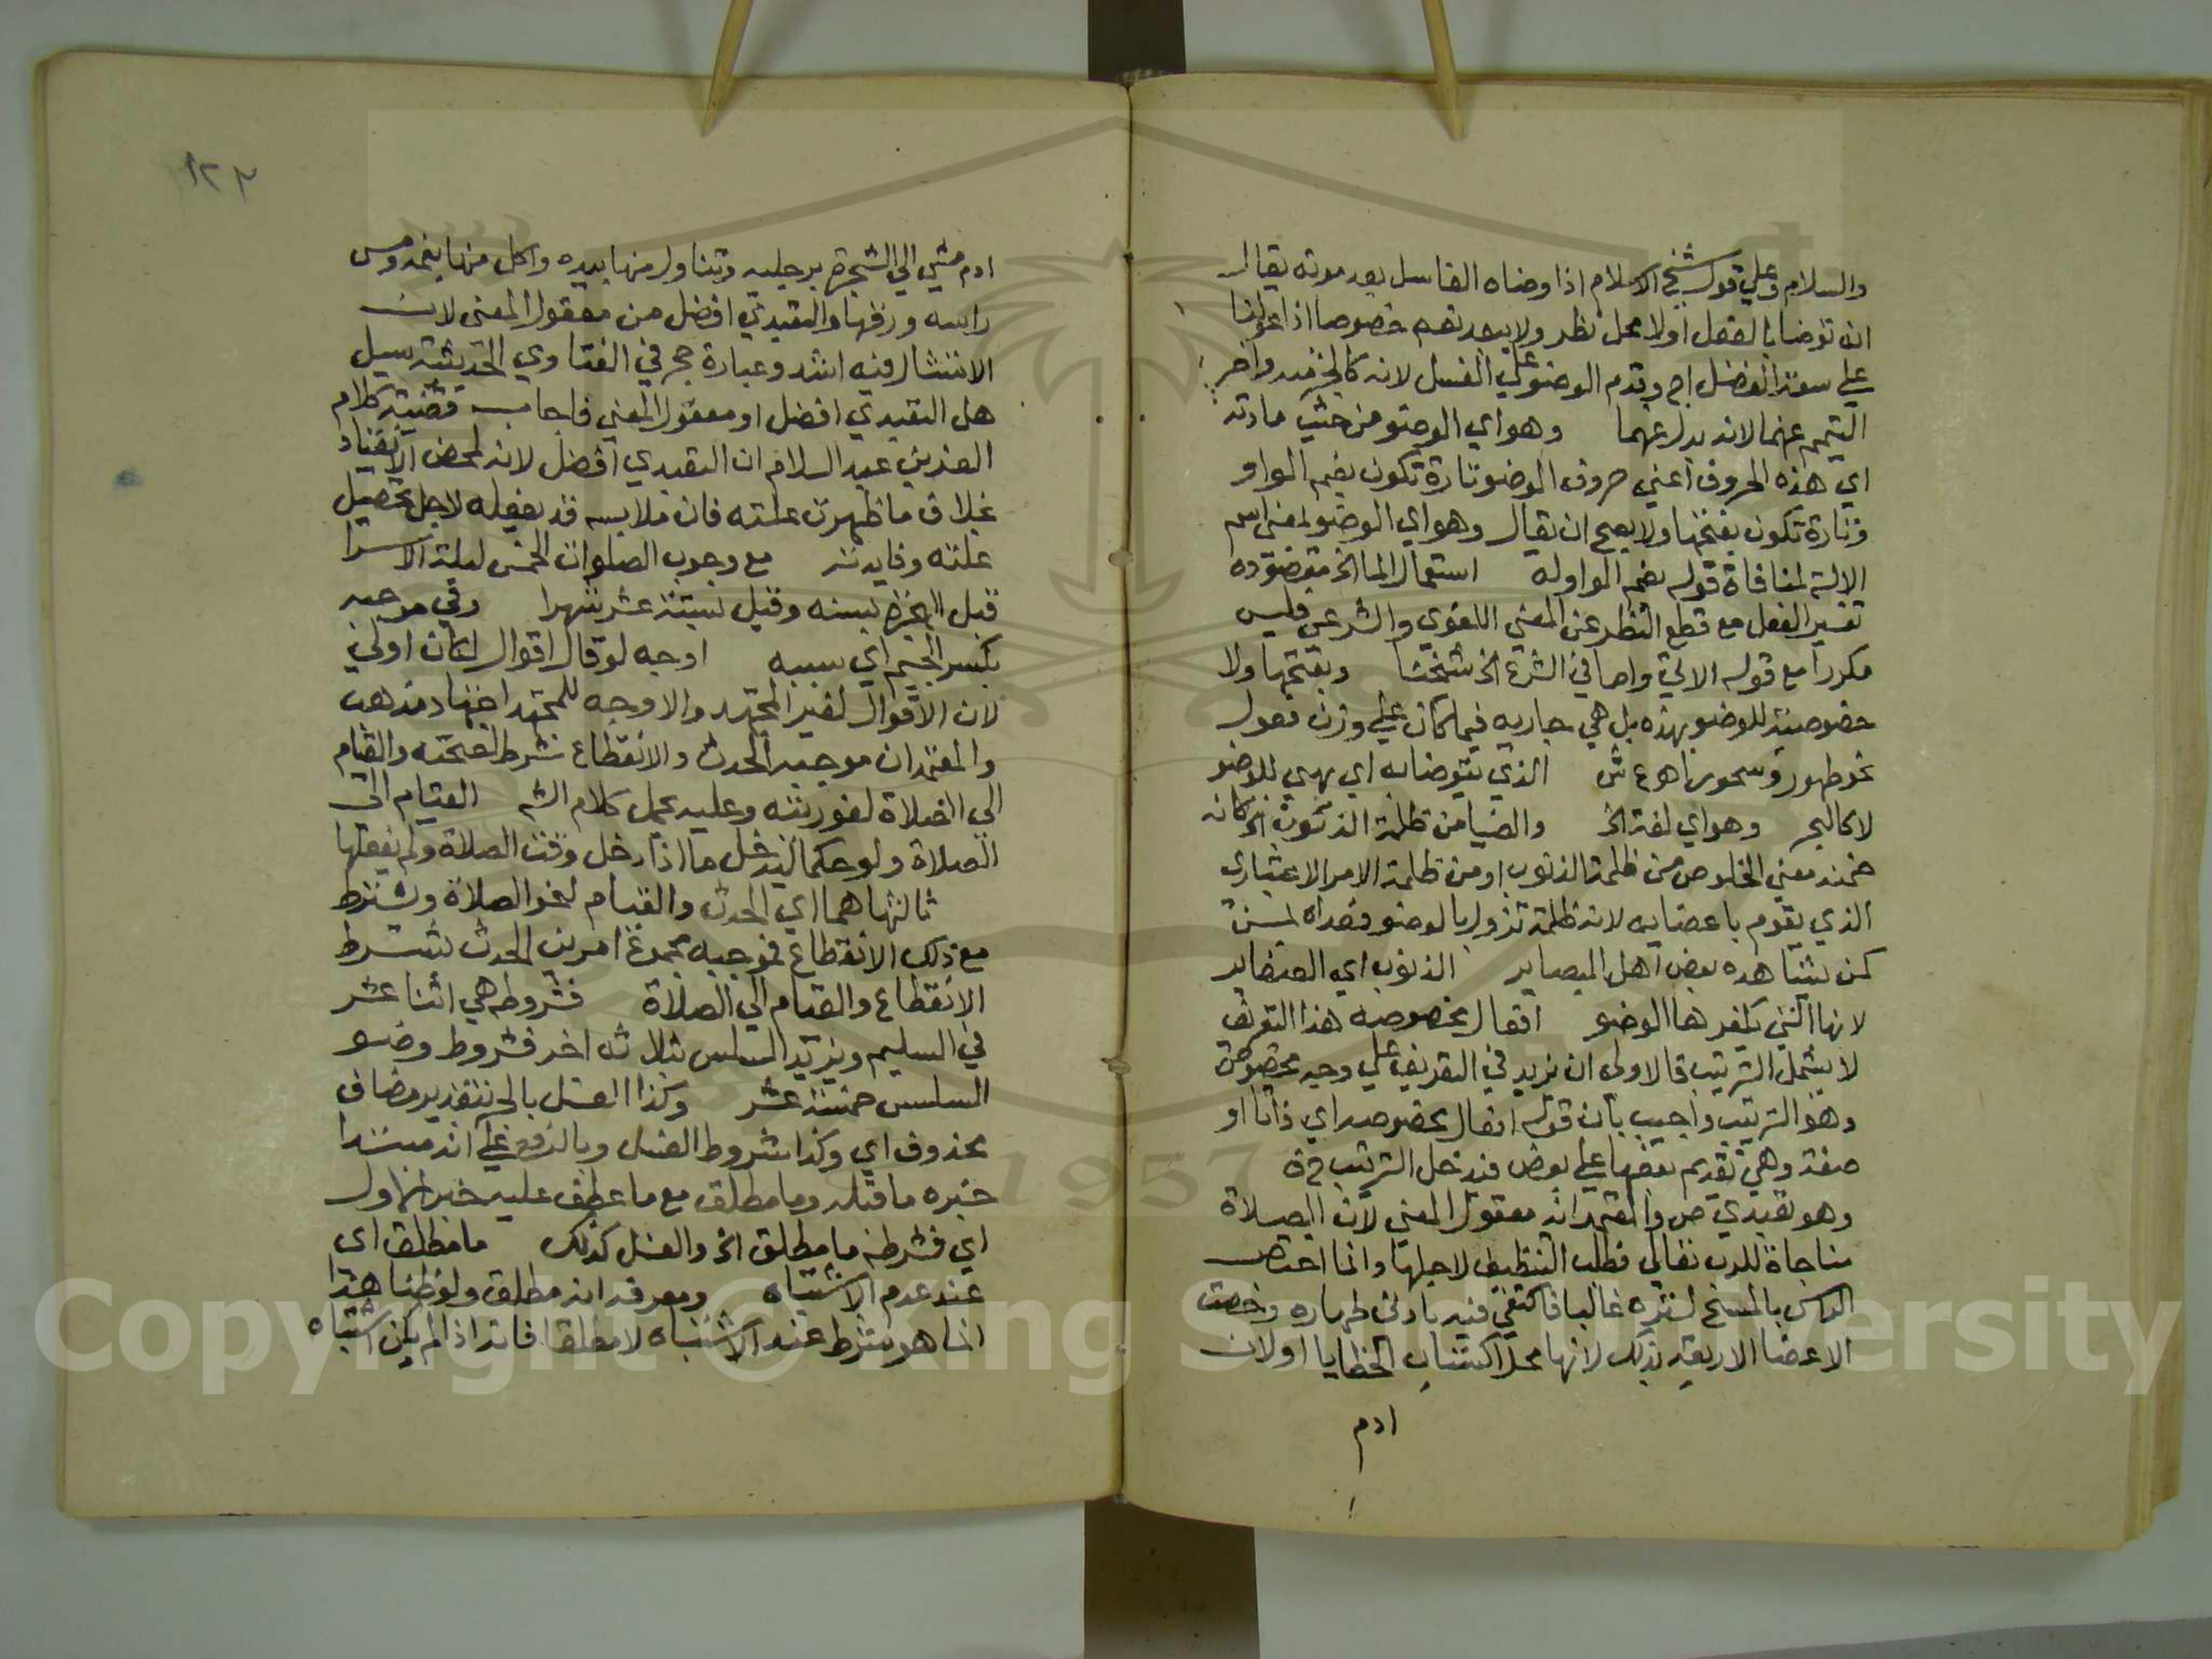 والسلام وعلي قول شيخ الاسلام اذا وضاه الغاسل بعد موته يقال
انه توضا بالفعل اولا محل نظر ولا يبعد نعم خصوصا اذا عولنا
علي سعة الفضل اج وقدم الوضو علي الغسل لانه كالجز منه واخر
التيمم عنهما لانه بدل عنهما وهو اي الوضو من حيث مادته
اي هذه الحروف اعني حروف الوضو تارة تكون بضم الواو
وتارة تكون بفتحها ولا يصح ان يقال وهو اي الوضو بمعني اسم
الالة لمنافاة قوله بضم الواو له استعمال الما الخ مقصوده
تفسير الفعل مع قطع النظر عن المعني اللغوي والشرعي فليس
مكررا مع قوله الاتي واما في الشرع الخ شيخنا وبفتحها ولا
خصوصية للوضو بهذه بل هي جاريه فيما كان علي وزن فعول
نحو طهور وسحور اهـ ع ش الذي يتوضا به اي يهي للوضو
لا كالبحر وهو اي لغة الخ والضيا من ظلمة الذنوب الخ كانه
ضمنه معني الخلوص من ظلمة الذنوب او من ظلمة الامر الاعتباري
الذي يقوم باعضايه لانه ظلمة تزول بالوضو
كمن يشاهده بعض اهل البصاير الذنوب اي الصغاير
لانها التي يكفرها الوضو افعال مخصوصه هذا التعريف
لا يشمل الترتيب فالاولي ان يزيد في التعريف علي وجه مخصوص
وهو الترتيب واجيب بان قوله افعال مخصوصه اي ذاتا او
صفة وهي تقديم بعضها علي بعض فيدخل الترتيب
وهو تعبدي ص والمعتمد انه معقول المعني لان الصلاة
مناجاة للرب تعالي فطلب التنظيف لاجلها وانما اختص
الراس بالمسح لستره غالبا فاكتفي فيه بادني طهاره وخصت
الاعضا الاربعه بذلك لانها محل اكتساب الخطايا او لان
ادم
١٢٣
ادم مشي الي الشجرة برجليه وتناول منها بيده واكل منها بفمه ومس
راسه ورقها والتعبدي افضل من معقول المعني لان
الامتثال فيه اشد وعبارة حج في الفتاوي الحديثية سيل
هل التعبدي افضل او معقول المعني فاجاب قضية كلام
العز بن عبد السلام ان التعبدي افضل لانه لمحض الانقياد
بخلاف ما ظهرت علته فان ملابسه قد يفعله لاجل تحصيل
علته وفايدته مع وجوب الصلوات الخمس ليلة الاسرا
قبل الهجرة بسنه وقيل بستة عشر شهرا وفي موجبه
بكسر الجيم اي سببه اوجه لو قال اقوال لكان اولي
لان الاقوال لغير المجتهد والاوجه للمجتهد اجتهاد مذهب
والمعتمد ان موجبه الحدث والانقطاع شرط لصحته والقيام
الي الصلاة لفوريته وعليه يحمل كلام الشه القيام الي
الصلاة ولو حكما ليدخل ما اذا دخل وقت الصلاة ولم يفعلها
ثالثها هما اي الحدث والقيام لنحو الصلاة ويشترط
مع ذلك الانقطاع فموجبه مجموع امرين الحدث بشرط
الانقطاع والقيام الي الصلاة فشروطه هي اثنا عشر
في السليم ويزيد السلس بثلاثه اخر فشروط وضو
السلس خمسة عشر وكذا الغسل بالجر بتقدير مضاف
محذوف اي وكذا شروط الغسل وبالرفع علي انه مبتدا
خبره ما قبله وما مطلق مع ما عطف عليه خبر الاول
اي فشرطه ما مطلق الخ والغسل كذلك ما مطلق اي
عند عدم الاشتباه ومعرفة انه مطلق ولو ظنا هذا
انما هو شرط عند الاشتباه لا مطلقا فانه اذا لم يكن اشتباه
Copyright © King Saud University
1957